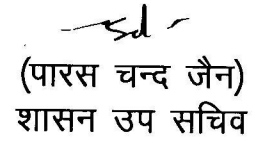 Sd/-
(पारस चन्द जैन)
शासन उप सचिव